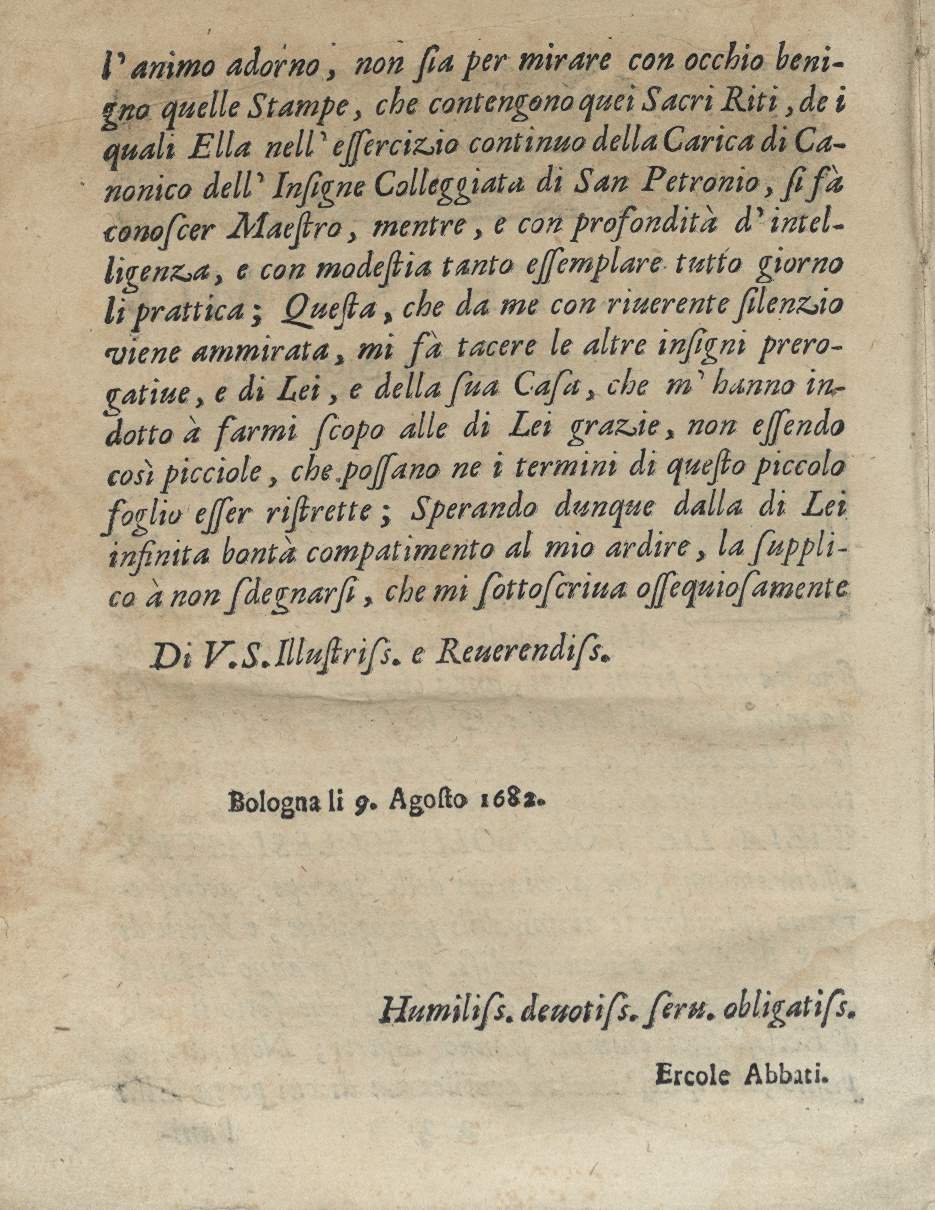 l' animo adorno, non ſia per mirare con occhio beni-
gno quelle Stampe, che contengono quei Sacri Riti, de i
quali Ella nell' eſſercizio continuo della Carica di Ca-
nonico dell' Inſigne Colleggiata di San Petronio, ſi fà
conoſcer Maeſtro, mentre, e con profondità d' intel-
ligenza, e con modeſtia tanto eſſemplare tutto giorno
li prattica; Queſta, che da me con riuerente ſilenzio
viene ammirata, mi fà tacere le altre inſigni prero-
gatiue, e di Lei, e della ſua Caſa, che m' hanno in-
dotto à farmi ſcopo alle di Lei grazie, non eſſendo
così picciole, che poſſano ne i termini di queſto piccolo
foglio eſſer riſtrette; Sperando dunque dalla di Lei
infinita bontà compatimento al mio ardire, la ſuppli-
co à non ſdegnarſi, che mi ſottoſcriua oſſequioſamente
Di V.S. Illuſtriſs. e Reuerendiſs.
Bologna li 9. Agoſto 1682.
Humiliſs. deuotiſs. ſeru. obligatiſs.
Ercole Abbati.